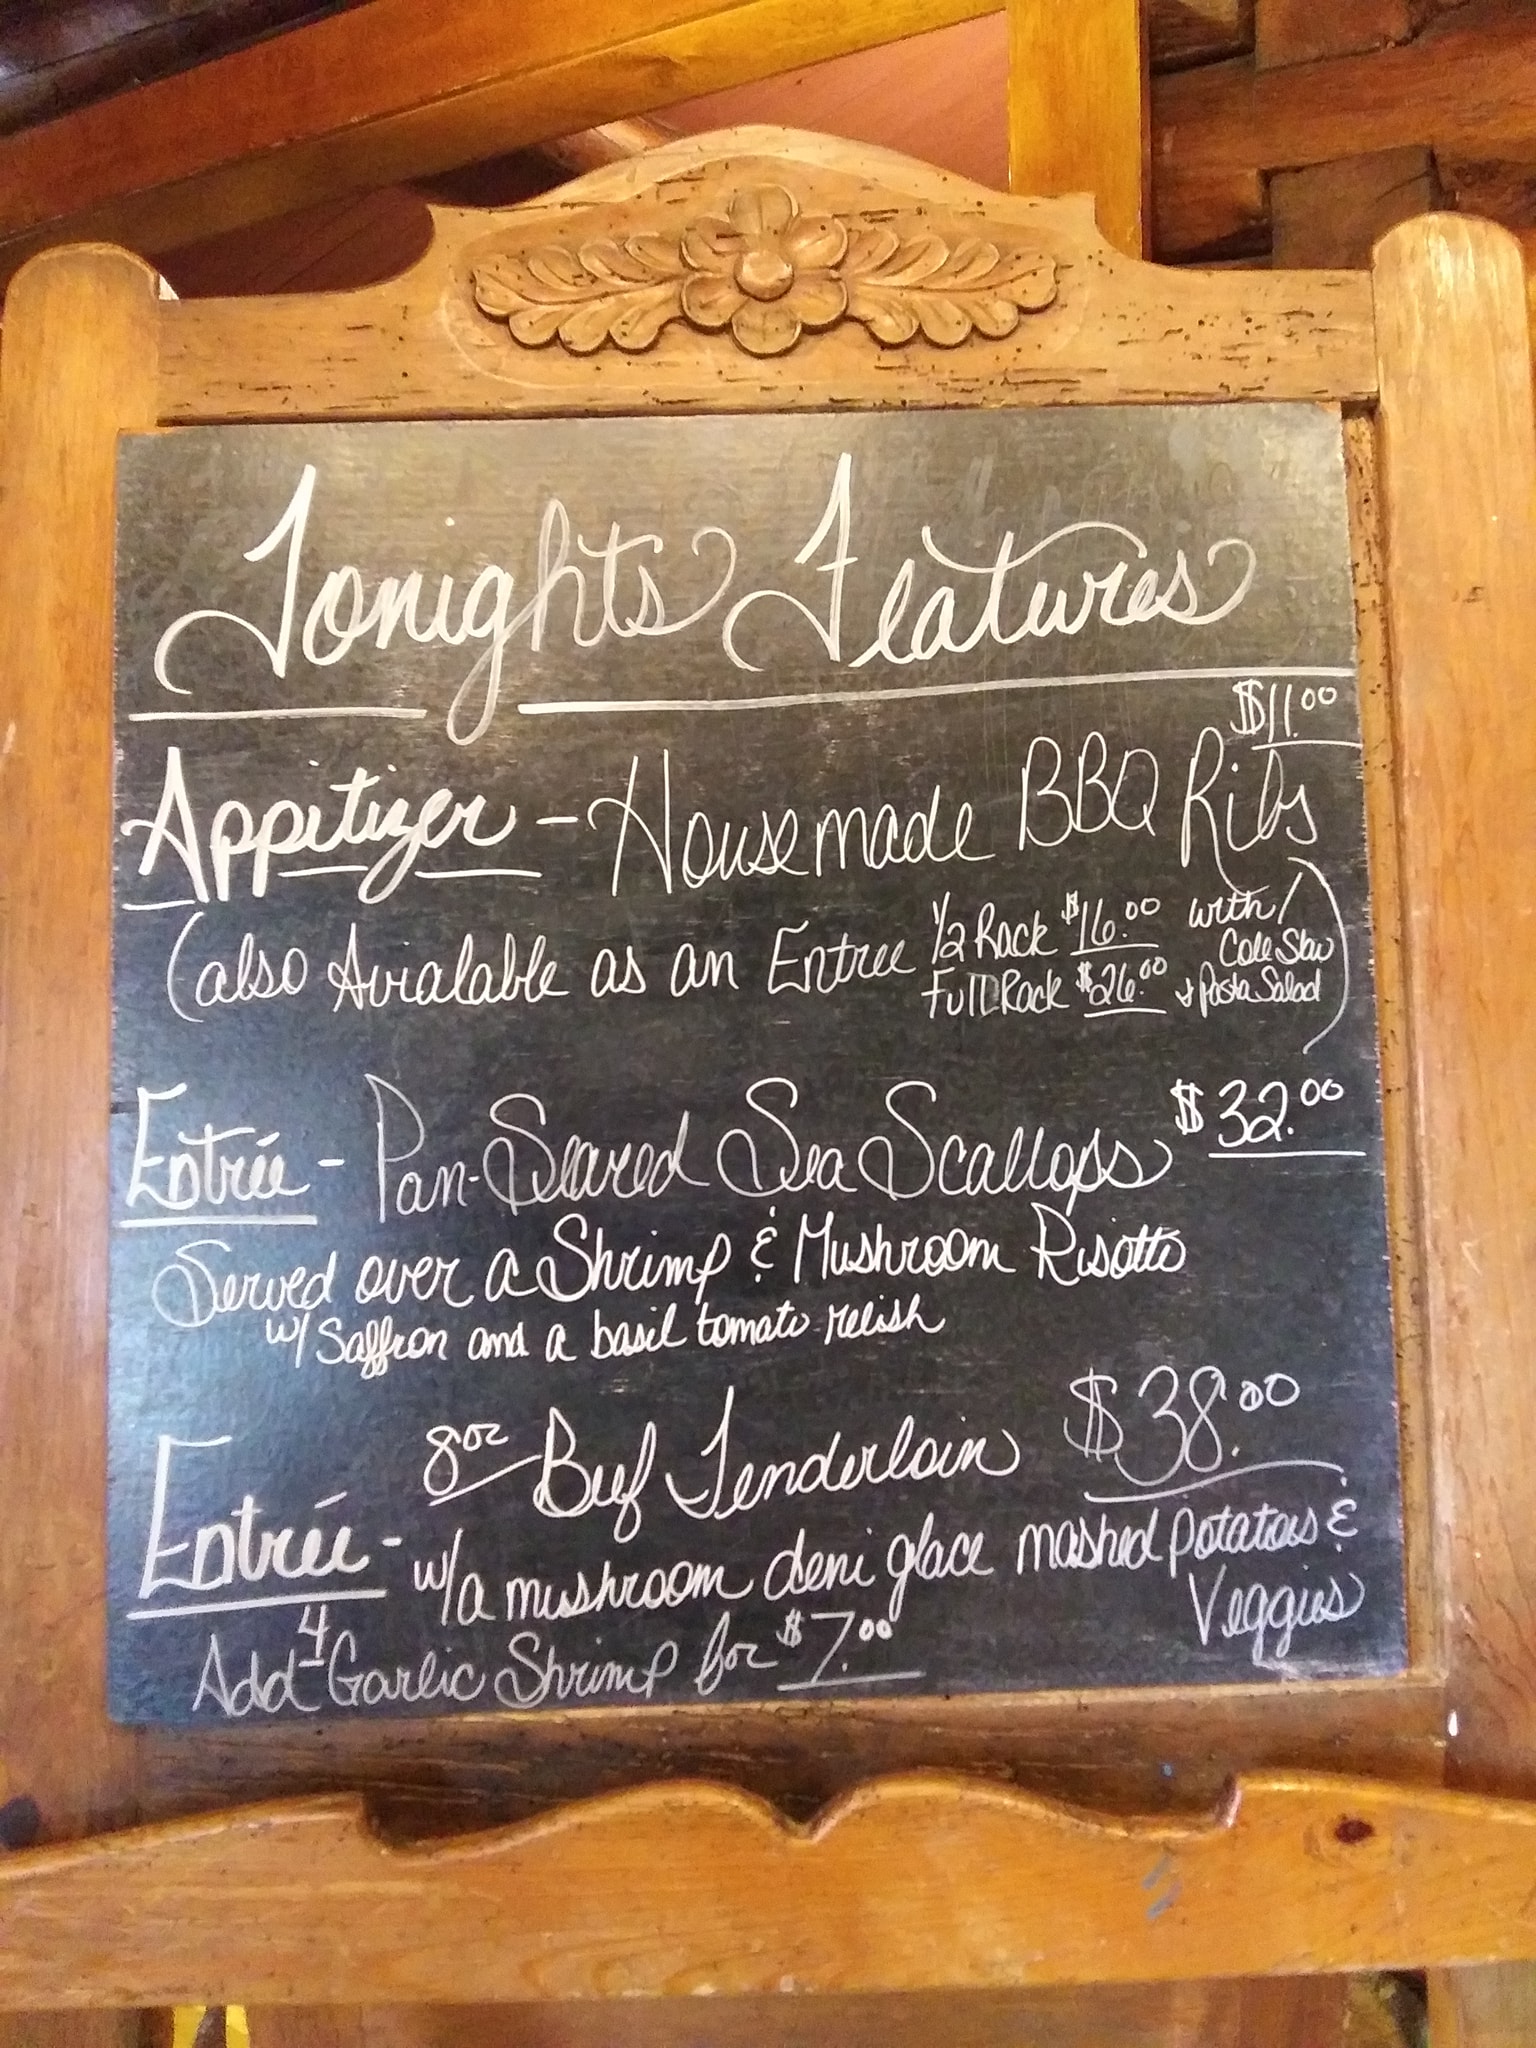 Tonights Features
$11.00
Appitizer - Housemade BBQ Ribs
(also Avialable as an Entree 1/2 Rack $16.00 with/
Cole Slaw
Full Rack $26.00 + Pasta Salad)
Entrée - Pan-Seared Sea Scallops $32.00
Served over a Shrimp & Mushroom Risotto
w/ Saffron and a basil tomato relish
Entrée - 8oz Beef Tenderloin $38.00
w/a mushroom demi glace mashed potatoes &
Veggies
Add 4 Garlic Shrimp for $7.00